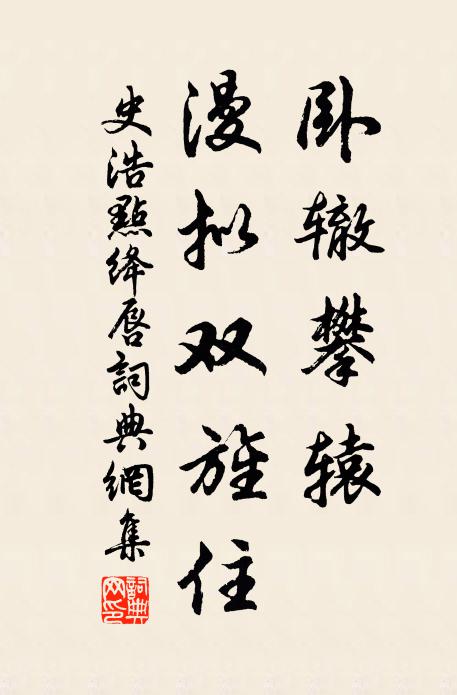 卧辙攀辕
漫拟双旌住
史浩點绛唇詞典網集
詞典网印